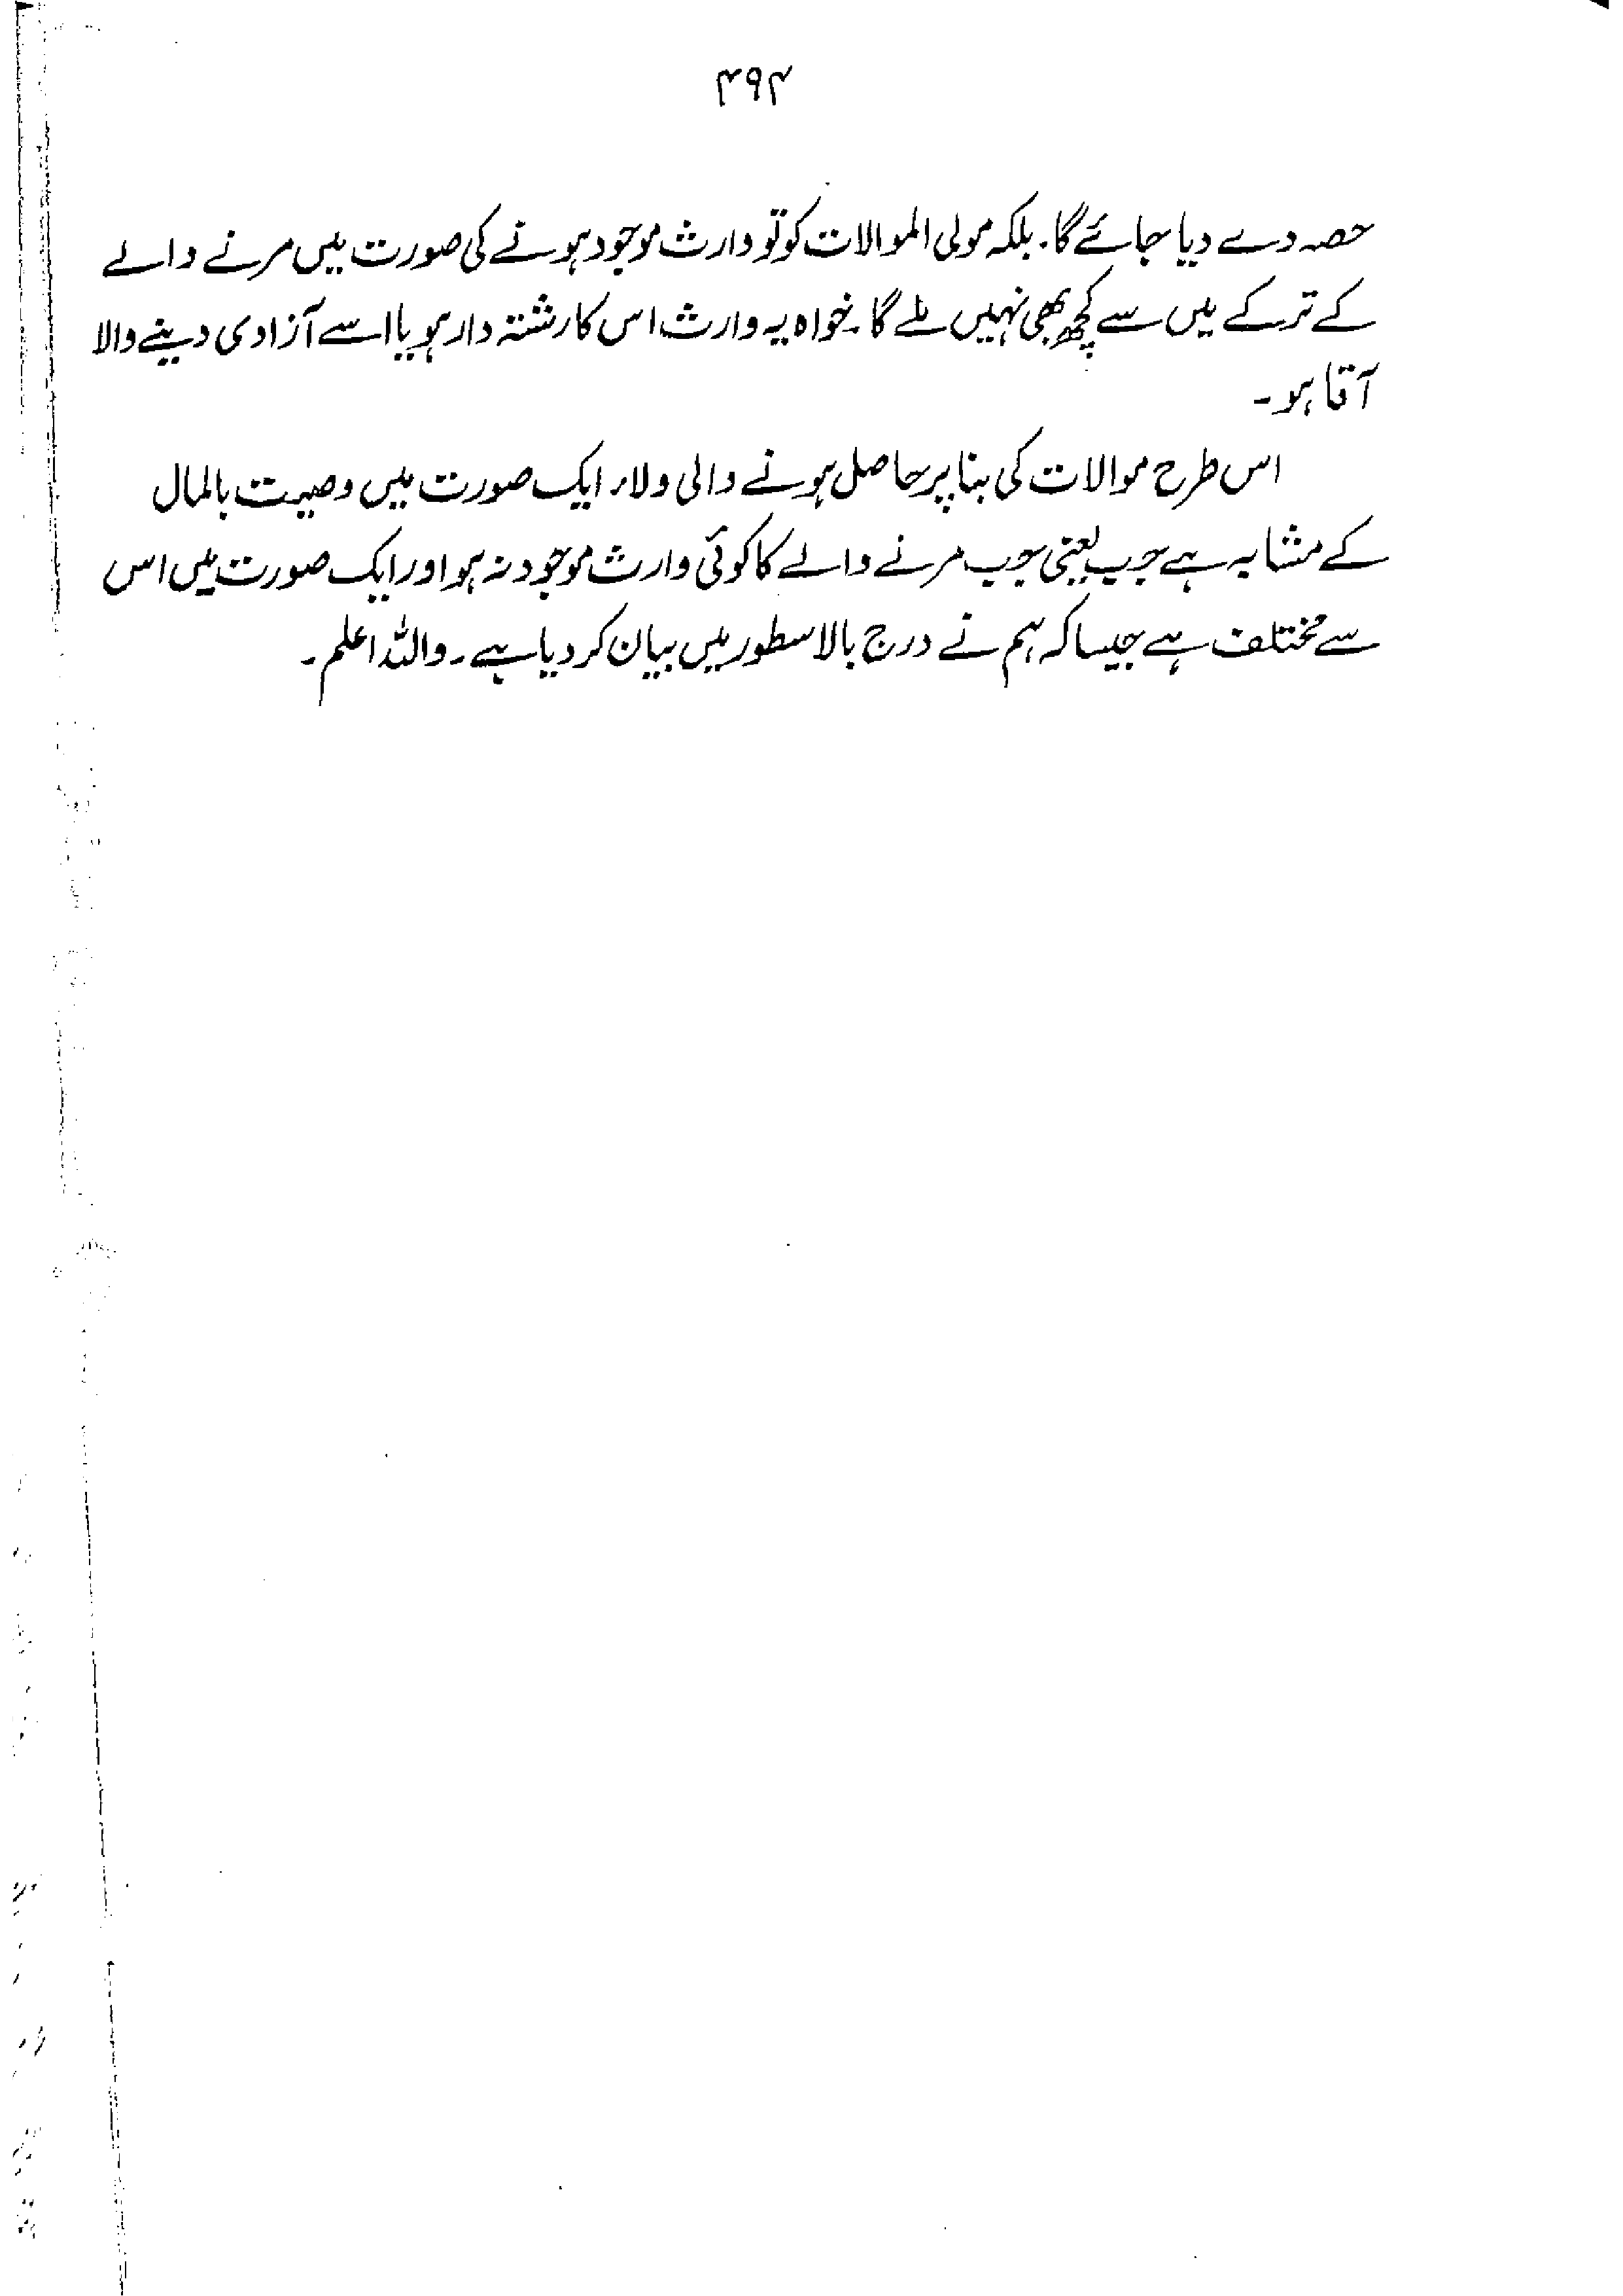 ۴۹۴
حصہ دے دیا جائے گا۔ بلکہ مولی الموالات کو تو وارث موجود ہونے کی صورت میں مرنے والے
کے ترکے میں سے کچھ بھی نہیں ملے گا۔ خواہ یہ وارث اس کا رشتہ دار ہو یا اسے آزادی دینے والا
آقا ہو۔
اس طرح موالات کی بنا پر حاصل ہونے والی ولاء ایک صورت میں وصیت بالمال
کے مشابہ ہے جب یعنی جب مرنے والے کا کوئی وارث موجود نہ ہو اور ایک صورت میں اس
سے مختلف ہے جیسا کہ ہم نے درج بالا سطور میں بیان کر دیا ہے۔ واللہ اعلم۔